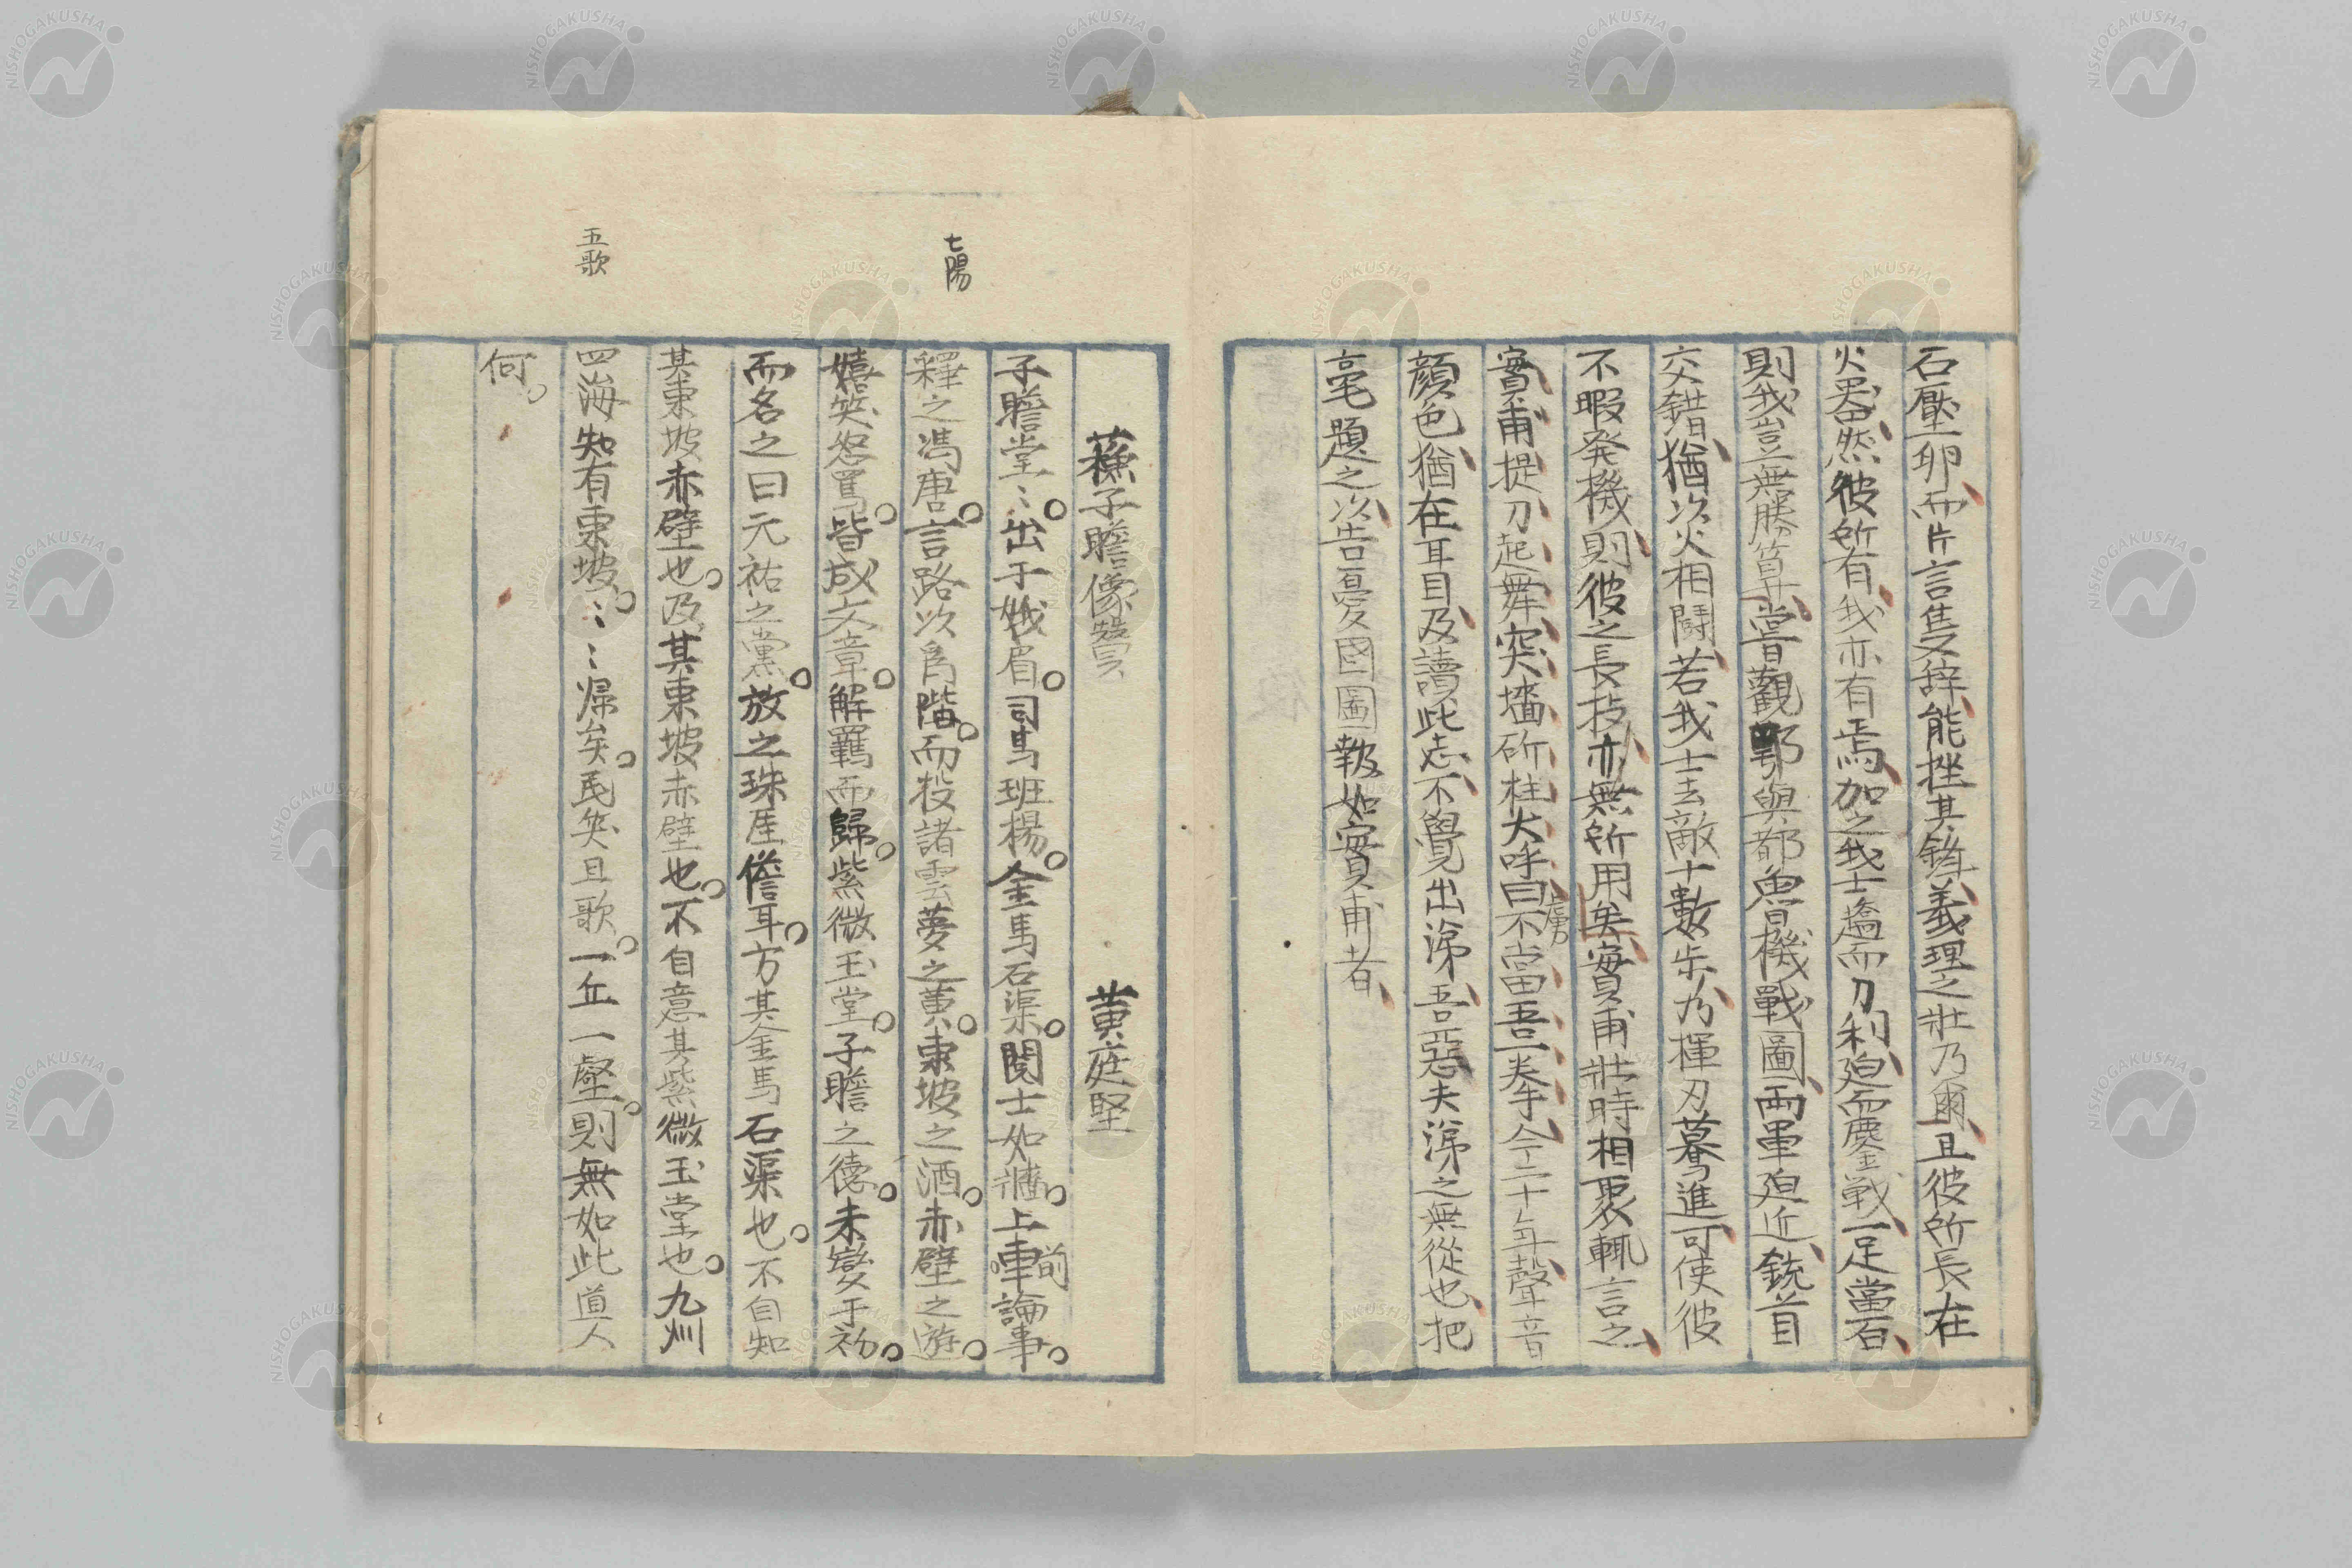 石壓卵而片言隻辞能挫其鋒義理之壯乃爾且彼所長在
火器然彼所有我亦有焉加之我士趫而刀利廹而鏖戰一足當百
則我豈無勝算嘗觀鄂與都魯機戰圖兩軍廹近銃首
交錯猶以火相鬪若我士去敵十數歩乃揮刃驀進可使彼
不暇発機則彼之長技亦無所用矣實甫壯時相聚輒言之
實甫提刀起舞突墻斫柱大呼曰虜不當吾一拳今二十年聲音
顔色猶在耳目及讀此志不覺出涕吾惡夫涕之無從也把
毫題之以告憂國圖報如實甫者
蘓子瞻像賛　黄庭堅
子瞻堂〻出于峨眉司馬班楊金馬石渠閱士如牆上前論事
釋之馮唐言路以為階而投諸雲夢之黄東坡之酒赤壁之遊
嬉笑怒罵皆成文章解羈而歸紫微玉堂子瞻之德未變于初
而名之曰元祐之黨放之珠厓儋耳方其金馬石渠也不自知
其東坡赤壁也及其東坡赤壁也不自意其紫微玉堂也九州
四海知有東坡〻〻歸矣民笑且歌一丘一壑則無如此道人
何
七陽
五歌
NISHOGAKUSHA